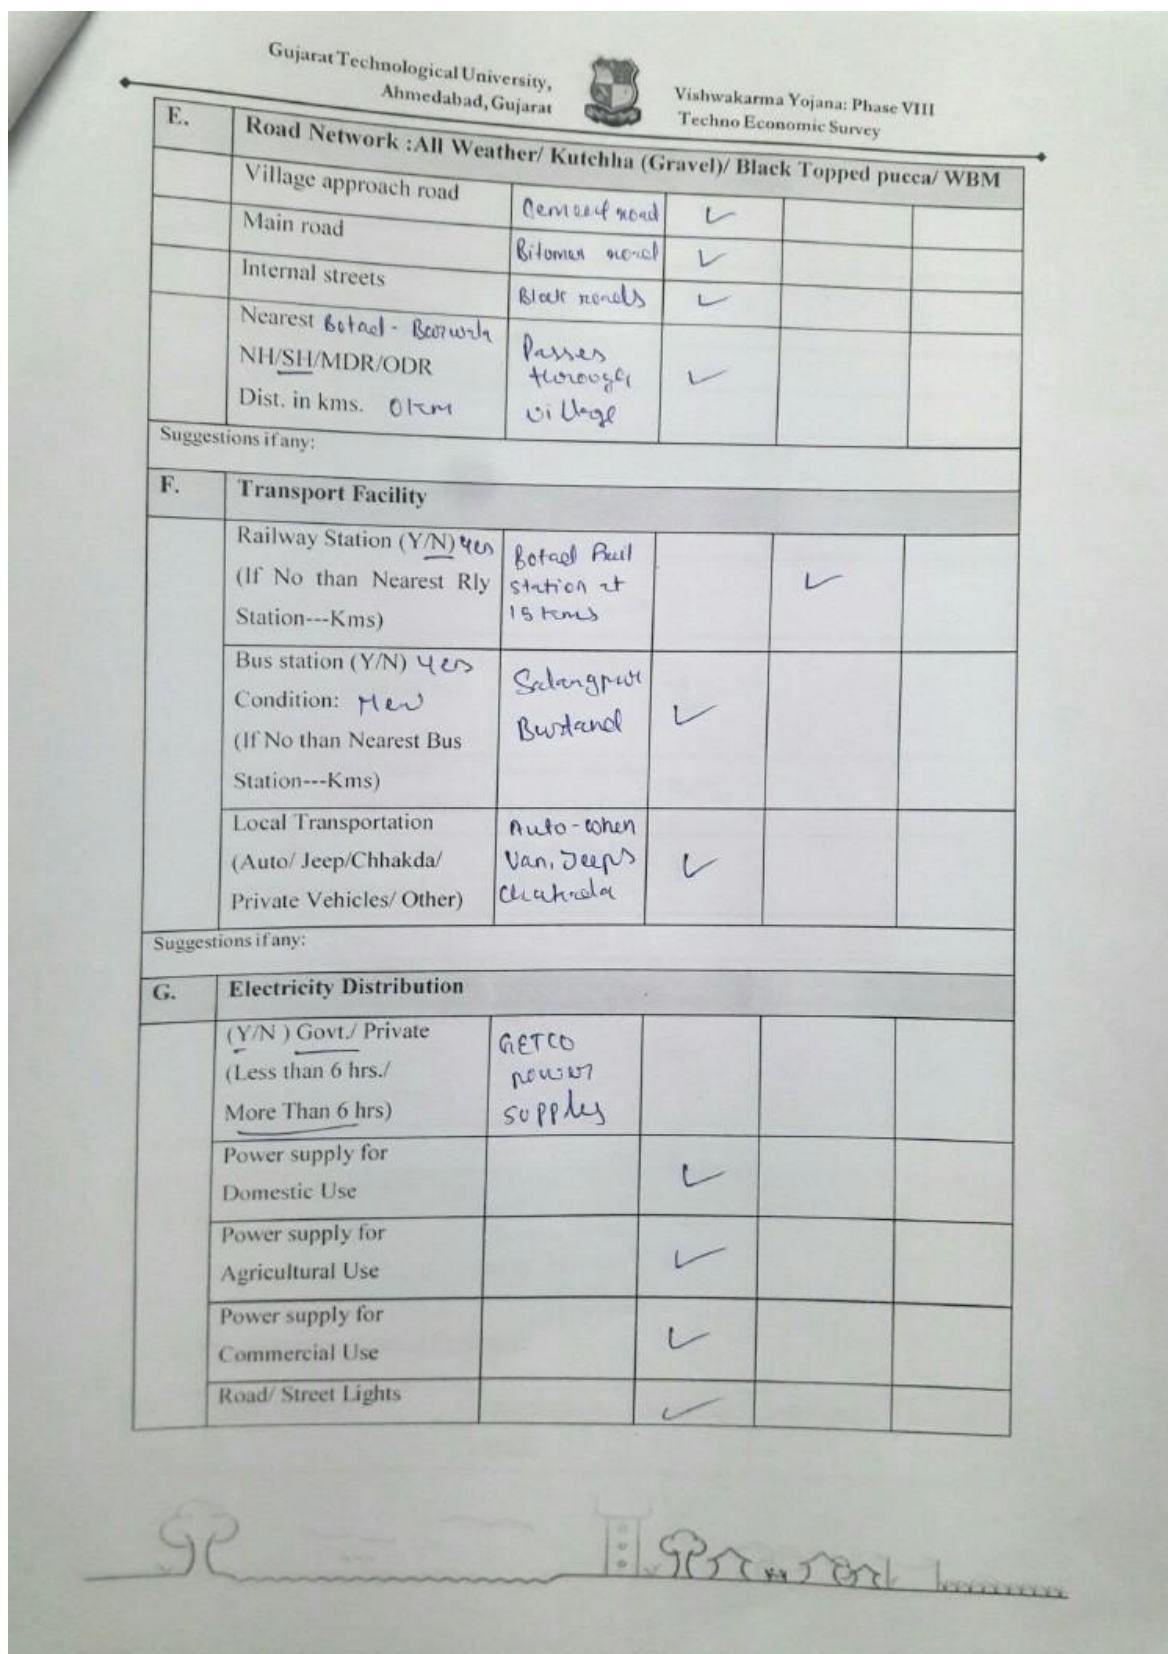 Gujarat Technological University,
Ahmedabad, Gujarat
Vishwakarma Yojana: Phase VIII
Techno Economic Survey
E. Road Network :All Weather/ Kutchha (Gravel)/ Black Topped pucca/ WBM
Village approach road Cement road ✓
Main road Bitumen road ✓
Internal streets Block roads ✓
Nearest Botad - Barwala Passes
NH/SH/MDR/ODR through ✓
Dist. in kms. 0 km village
Suggestions if any:
F. Transport Facility
Railway Station (Y/N) Yes Botad Rail
(If No than Nearest Rly station at ✓
Station---Kms) 15 kms
Bus station (Y/N) Yes Salangpur
Condition: New Bustand ✓
(If No than Nearest Bus
Station---Kms)
Local Transportation Auto-
(Auto/ Jeep/Chhakda/ Van, Jeeps ✓
Private Vehicles/ Other) Chakada
Suggestions if any:
G. Electricity Distribution
(Y/N ) Govt./ Private GETCO
(Less than 6 hrs./ power
More Than 6 hrs) supply
Power supply for
Domestic Use ✓
Power supply for
Agricultural Use ✓
Power supply for
Commercial Use ✓
Road/ Street Lights ✓